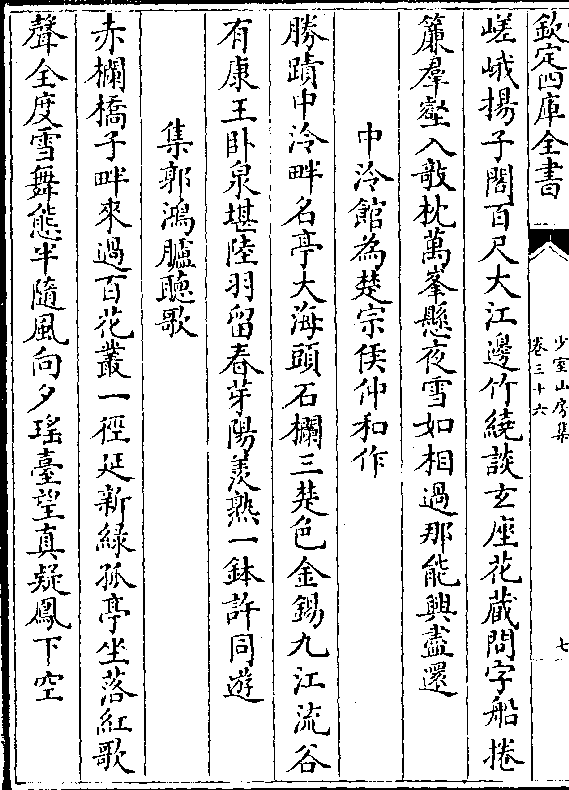 欽定四庫全書
少室山房集
卷三十六
七
嵯峨揚子閣百尺大江邊竹繞談玄座花藏問字船捲
簾羣壑入欹枕萬峯懸夜雪如相過那能興盡還
中泠館為楚宗侯仲和作
勝蹟中泠畔名亭大海頭石欄三楚色金錫九江流谷
有康王卧泉堪陸羽留春芽陽羨熟一鉢許同遊
集郭鴻臚聽歌
赤欄橋子畔來過百花叢一徑延新綠孤亭坐落紅歌
聲全度雪舞態半隨風向夕瑤臺望真疑鳳下空